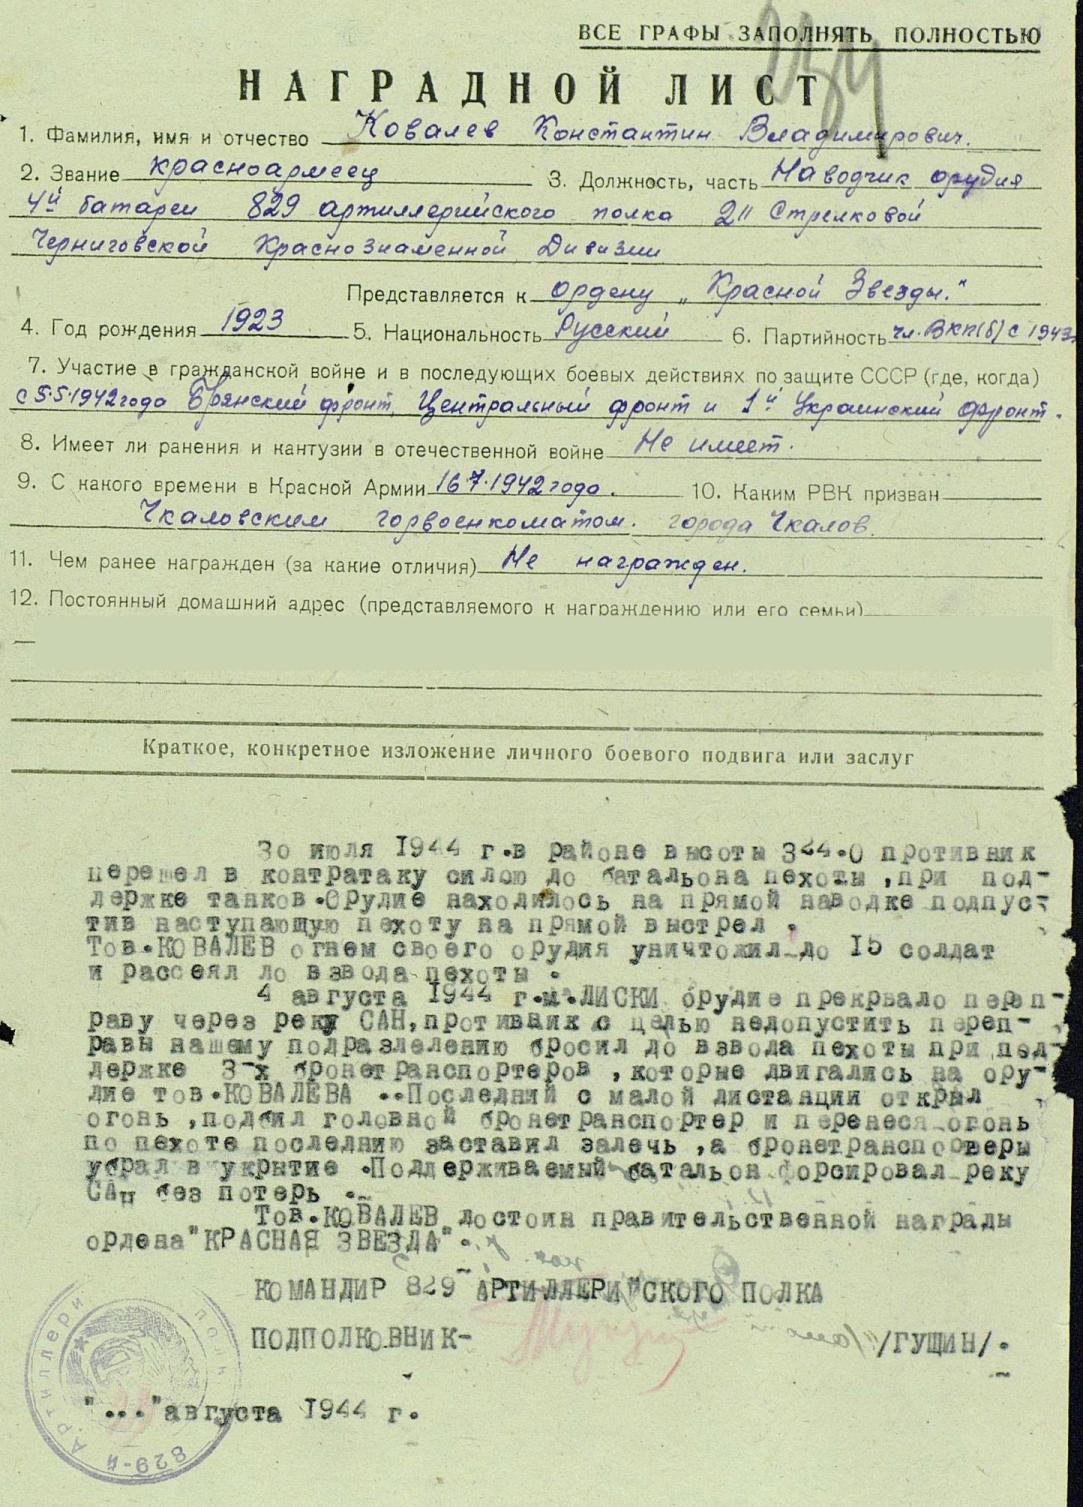 ВСЕ ГРАФЫ ЗАПОЛНЯТЬ ПОЛНОСТЬЮ
НАГРАДНОЙ ЛИСТ
1. Фамилия, имя и отчество Ковалев Константин Владимирович.
2. Звание красноармеец 3. Должность, часть Наводчик орудия
4й батареи 829 артиллерийского полка 211 Стрелковой
Черниговской Краснознаменной Дивизии
Представляется к ордену „Красной Звезды."
4. Год рождения 1923 5. Национальность Русский 6. Партийность чл. ВКП(б) с 1943
7. Участие в гражданской войне и в последующих боевых действиях по защите СССР (где, когда)
с 5·5·1942 года Брянский фронт, Центральный фронт и 1й Украинский фронт.
8. Имеет ли ранения и кантузии в отечественной войне Не имеет.
9. С какого времени в Красной Армии 16·7·1942 года. 10. Каким РВК призван
Чкаловским горвоенкоматом. города Чкалов.
11. Чем ранее награжден (за какие отличия) Не награжден.
12. Постоянный домашний адрес (представляемого к награждению или его семьи)
Краткое, конкретное изложение личного боевого подвига или заслуг
30 июля 1944 г.в районе высоты 344.0 противник
перешел в контратаку силою до батальона пехоты ,при под-
держке танков.Орудие находилось на прямой наводке подпус-
тив наступающую пехоту на прямой выстрел .
Тов.КОВАЛЕВ огнем своего орудия уничтожил до 15 солдат
и рассеял до взвода пехоты .
4 августа 1944 г.м.ЛИСКИ орудие прекрвало переп-
раву через реку САН,противник с целью недопустить переп-
равы нашему подразделению бросил до взвода пехоты при под-
держке 3-х бронетранспортеров ,которые двигались на ору-
дие тов.КОВАЛЕВА ..Последний с малой дистанции открыл
огонь ,подбил головной бронетранспортер и перенеся огонь
по пехоте последнию заставил залечь ,а бронетранспортеры
убрал в укрытие .Поддерживаемый батальон форсировал реку
САн без потерь .
Тов.КОВАЛЕВ достоин правительственной награды
ордена "КРАСНАЯ ЗВЕЗДА".
КОМАНДИР 829 АРТИЛЛЕРИЙСКОГО ПОЛКА
ПОДПОЛКОВНИК- /ГУЩИН/.
"..."августа 1944 г.
829-й Артиллери полк